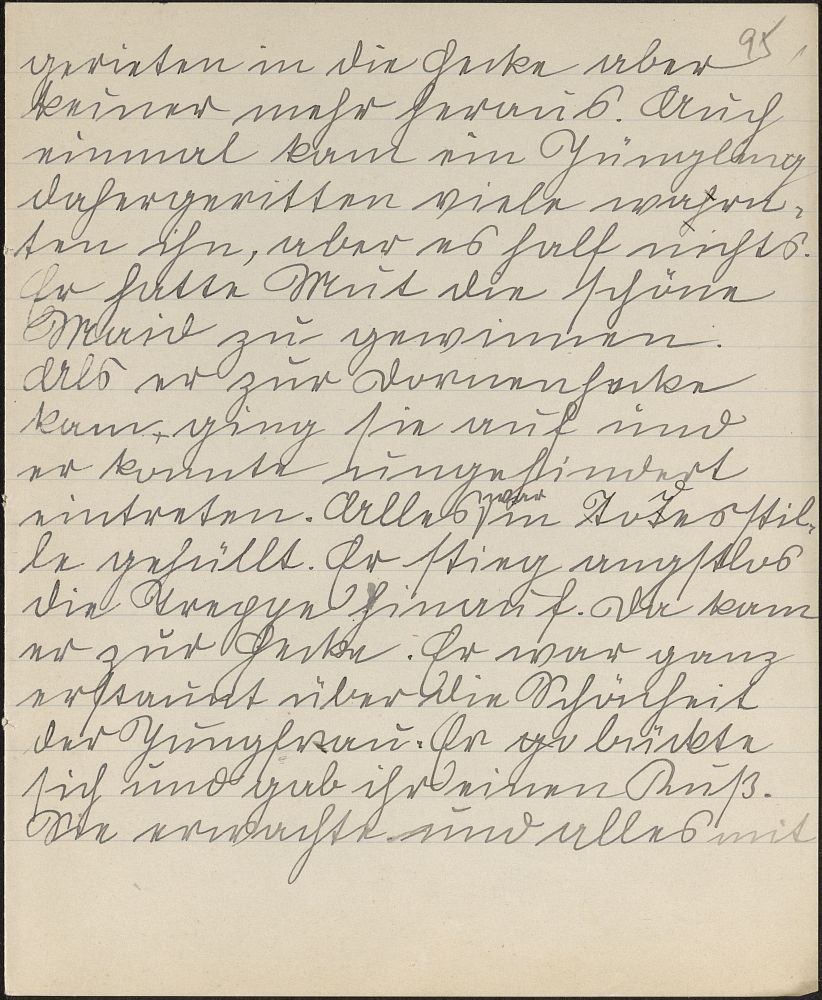 95
gerieten in die Hecke aber
keiner mehr heraus. Auch
einmal kam ein Jüngling
dahergeritten viele wahrn-
ten ihn, aber es half nichts.
Er hatte Mut die schöne
Maid zu gewinnen.
Als er zur Dornenhecke
kam, ging sie auf und
er konnte ungehindert
eintreten. Alles war in Todesstil-
le gehüllt. Er stieg angstlos
die Treppe hinauf. Da kam
er zur Hecke. Er war ganz
erstaunt über die Schönheit
der Jungfrau. Er bückte
sich und gab ihr einen Kuß.
Sie erwachte und alles mit